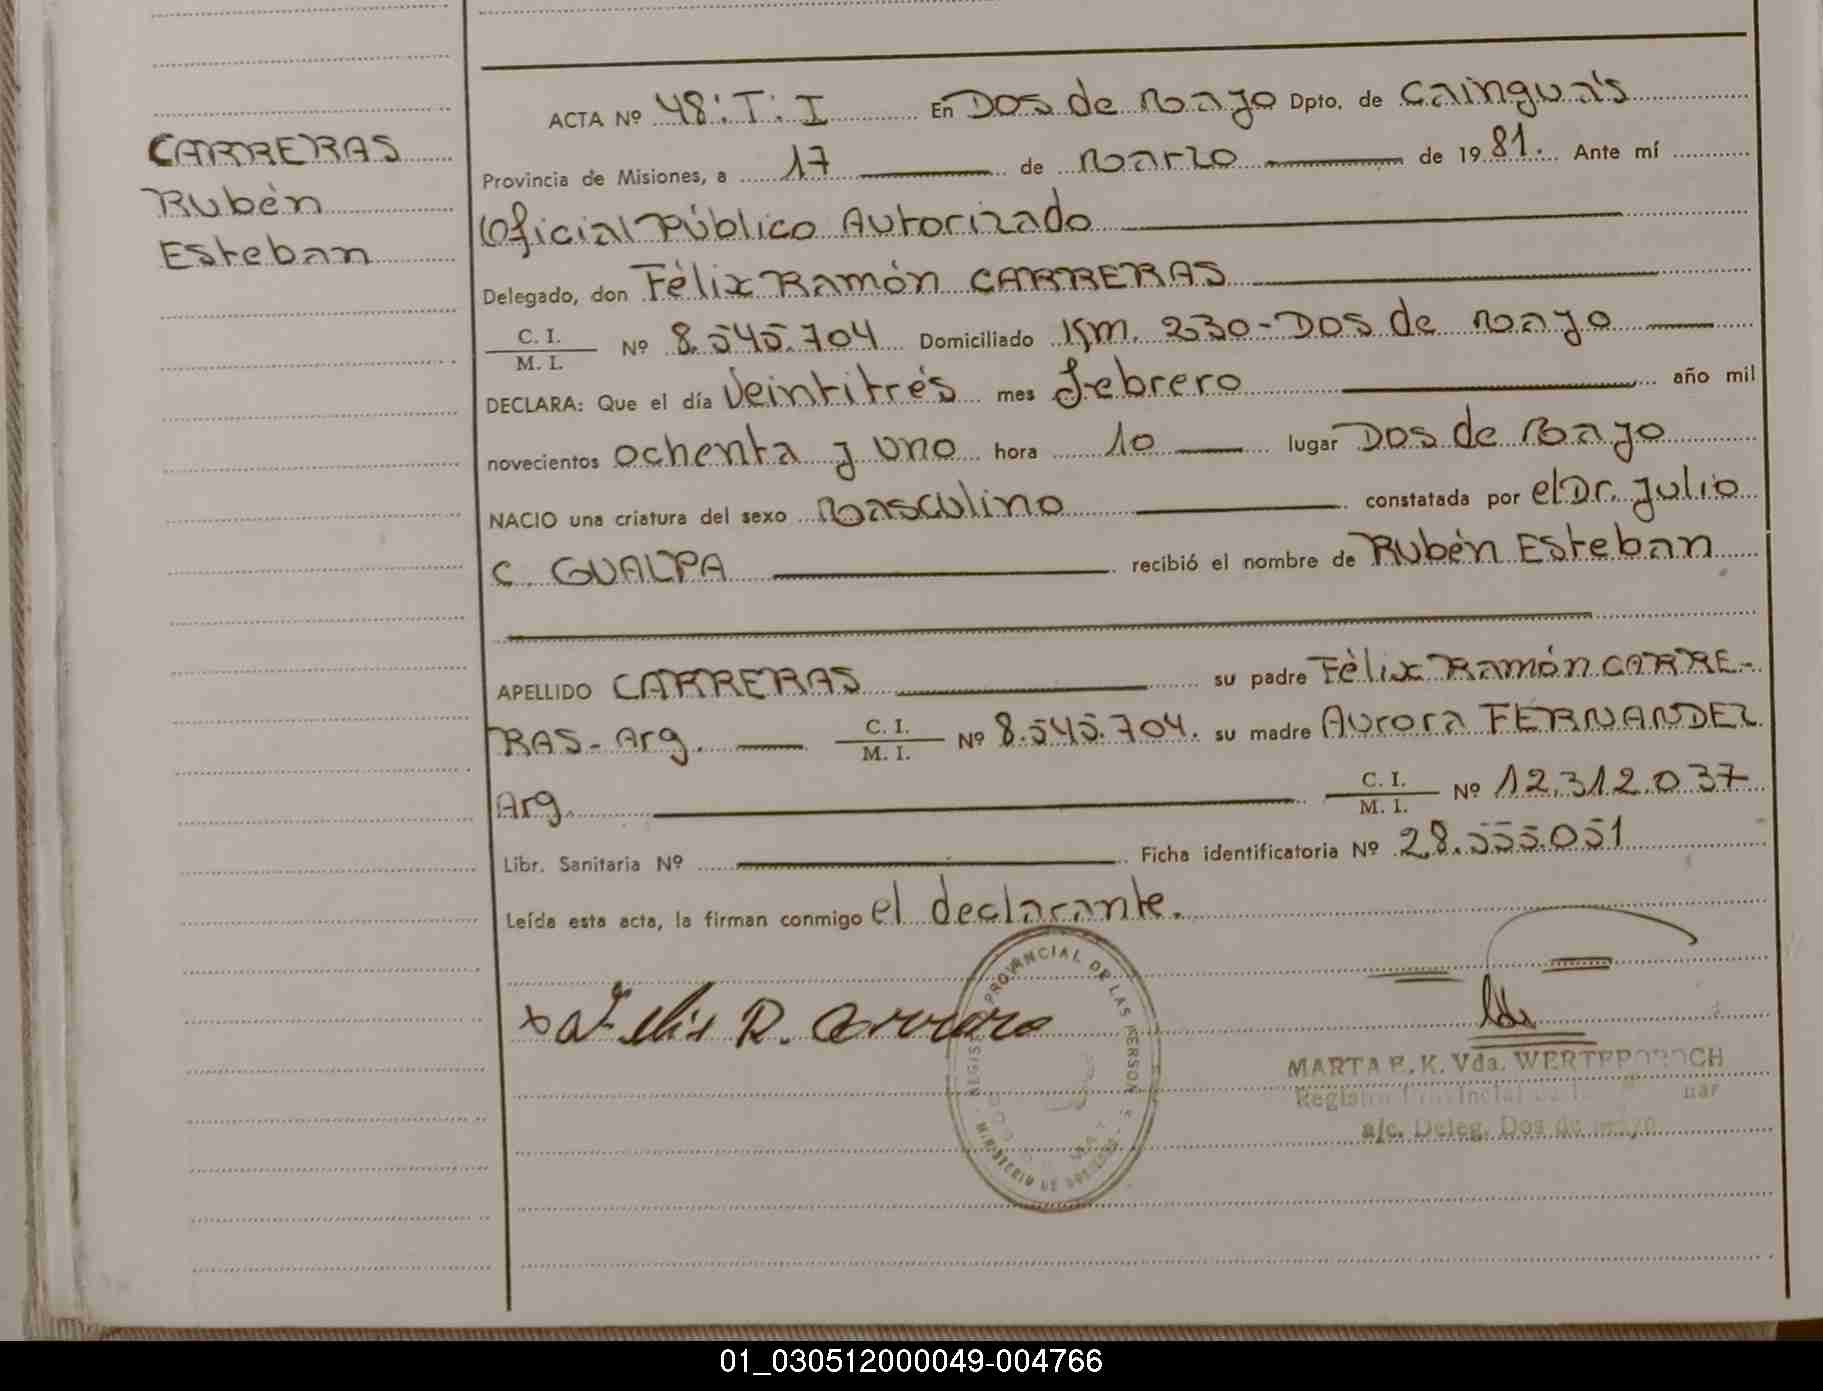 CARRERAS
Rubén
Esteban
ACTA Nº 48:T:I En Dos de Mayo Dpto. de Cainguás
Provincia de Misiones, a 17 de Marzo de 1981. Ante mí
Oficial Público Autorizado
Delegado, don Félix Ramón CARRERAS
C. I.
M. I. Nº 8.545.704 Domiciliado Km. 230-Dos de Mayo
DECLARA: Que el día Veintitrés mes febrero año mil
novecientos ochenta y uno hora 10 lugar Dos de Mayo
NACIO una criatura del sexo Masculino constatada por el Dr. Julio
C. GUALPA recibió el nombre de Rubén Esteban
APELLIDO CARRERAS su padre Félix Ramón CARRE-
RAS-Arg. C. I. M. I. Nº 8.545.704. su madre Aurora FERNANDEZ
Arg. C. I. M. I. Nº 12.312.037
Libr. Sanitaria Nº Ficha identificatoria Nº 28.555.051
Leída esta acta, la firman conmigo el declarante.
Felix R. Carrera
PROVINCIAL DE LAS PERSON
MINISTERIO DE
MARTA E. K. Vda.
Registro Provincial
a/c. Deleg. Dos de Mayo
01_030512000049-004766